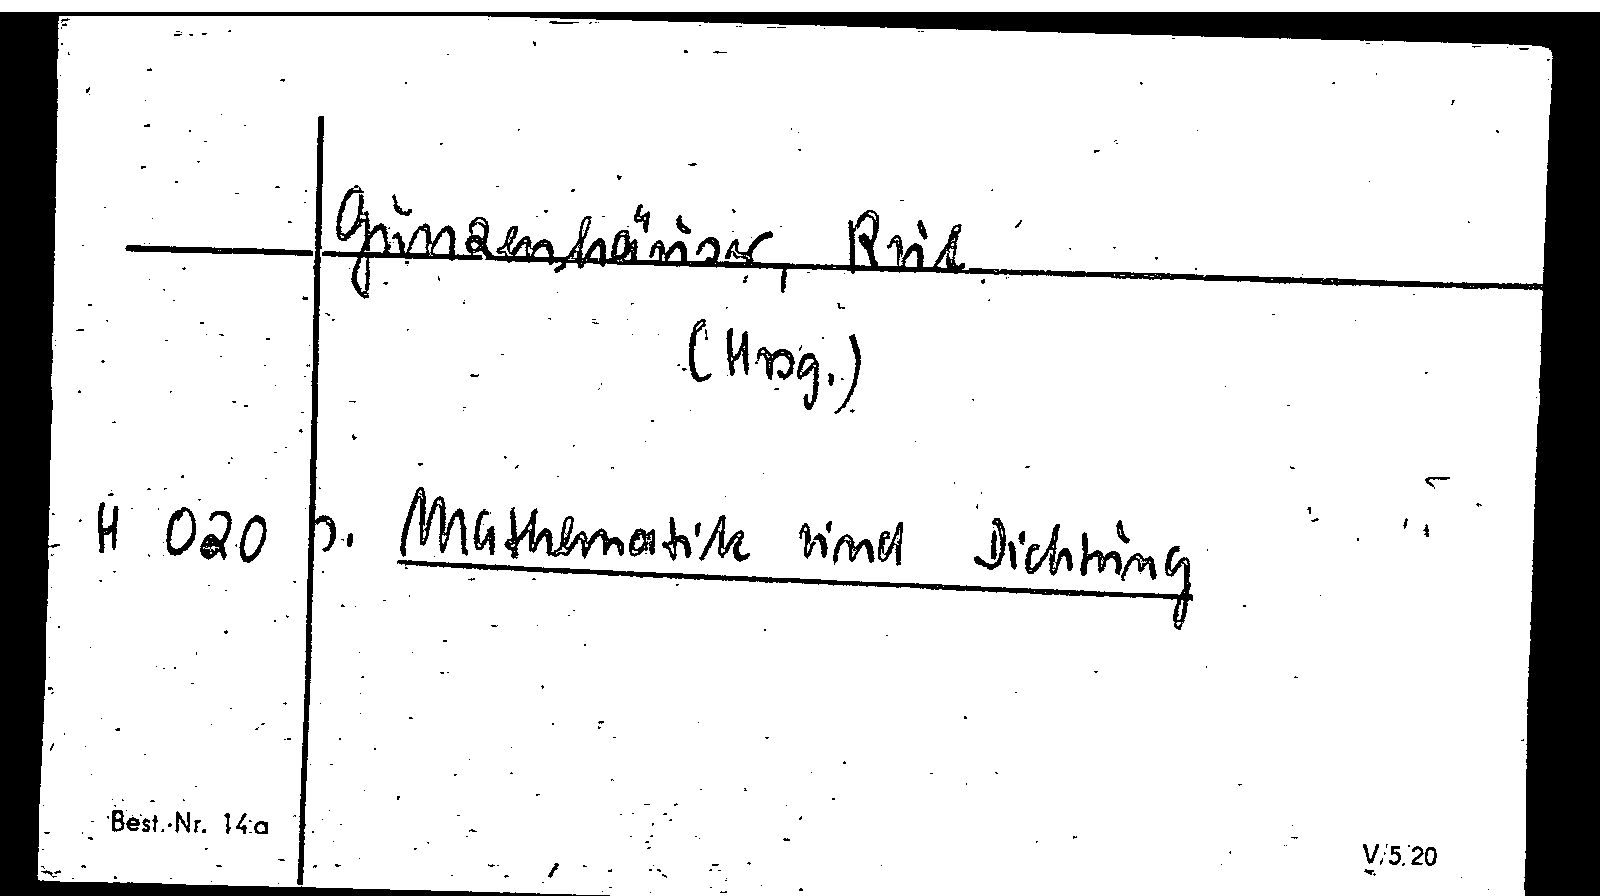 Gunzenhäuser, Rul
(Hrsg.)
H 020 s. Mathematik und Dichtung
Best.-Nr. 14a
V/5.20